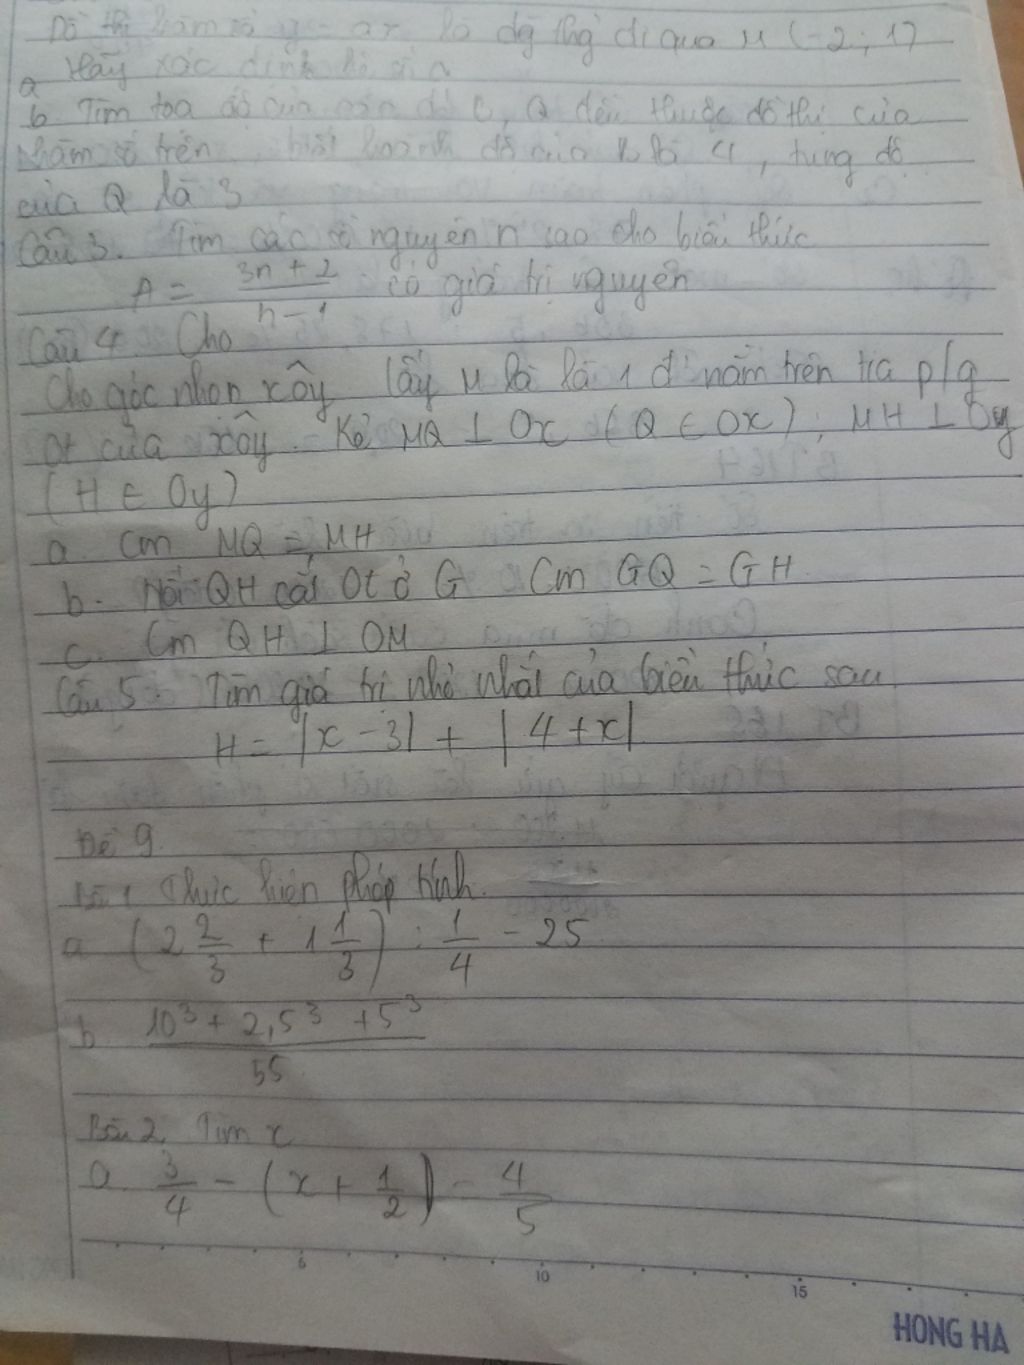 Đồ thị hàm số y = ax là đg thg đi qua M (-2; 1)
a Hãy xác định hệ số a
b Tìm toạ độ của điểm B, Q đều thuộc đồ thị của
hàm số trên, biết hoành độ của B là 4, tung độ
của Q là 3
Câu 3. Tìm các số nguyên n sao cho biểu thức
A = \frac{3n + 2}{n - 1} có giá trị nguyên
Câu 4 Cho
Cho góc nhọn xÔy lấy M là là 1 đ nằm trên tia p/g
Ot của xÔy. Kẻ MQ ⊥ Ox (Q ∈ Ox), MH ⊥ Oy
(H ∈ Oy)
a. Cm MQ = MH
b. Nối QH cắt Ot ở G Cm GQ = GH
c. Cm QH ⊥ OM
Câu 5. Tìm giá trị nhỏ nhất của biểu thức sau
H = |x - 3| + |4 + x|
Đề 9
Bài 1 Thực hiện phép tính
a (2\frac{2}{3} + 1\frac{1}{3}) : \frac{1}{4} - 25
b \frac{10^3 + 2,5^3 + 5^3}{55}
Bài 2. Tìm x
a. \frac{3}{4} - (x + \frac{1}{2}) = \frac{4}{5}
6 10 15
HONG HA